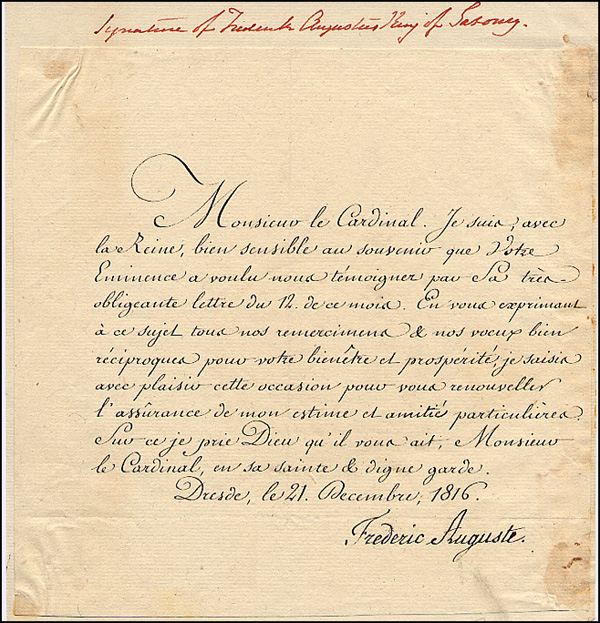 Signature of Frederick Augustus King of Saxony.
Monsieur le Cardinal. Je suis, avec
la Reine, bien sensible au souvenir que Votre
Eminence a voulu nous témoigner par Sa très
obligeante lettre du 12. de ce mois. En vous exprimant
à ce sujet tous nos remercimens & nos voeux bien
réciproques pour votre bienêtre et prospérité, je saisis
avec plaisir cette occasion pour vous renouveller
l'assûrance de mon estime et amitié particulières.
Sur ce je prie Dieu qu'il vous ait, Monsieur
le Cardinal, en sa sainte & digne garde.
Dresde, le 21. Decembre, 1816.
Frédéric Auguste.